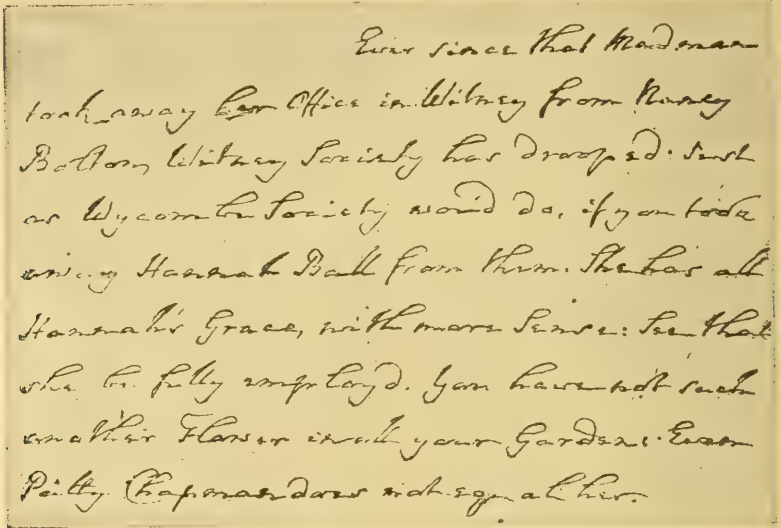 Ever since that Madman
took away her Office in Witney from Nancy
Bolton, Witney Society has drooped: Just
as Wycombe Society wou'd do, if you took
away Hannah Ball from them. She has all
Hannah's Grace, with more Sense: See that
she be fully employ'd. You have not such
another Flower in all your Gardens: Even
Patty Chapman does not equal her.